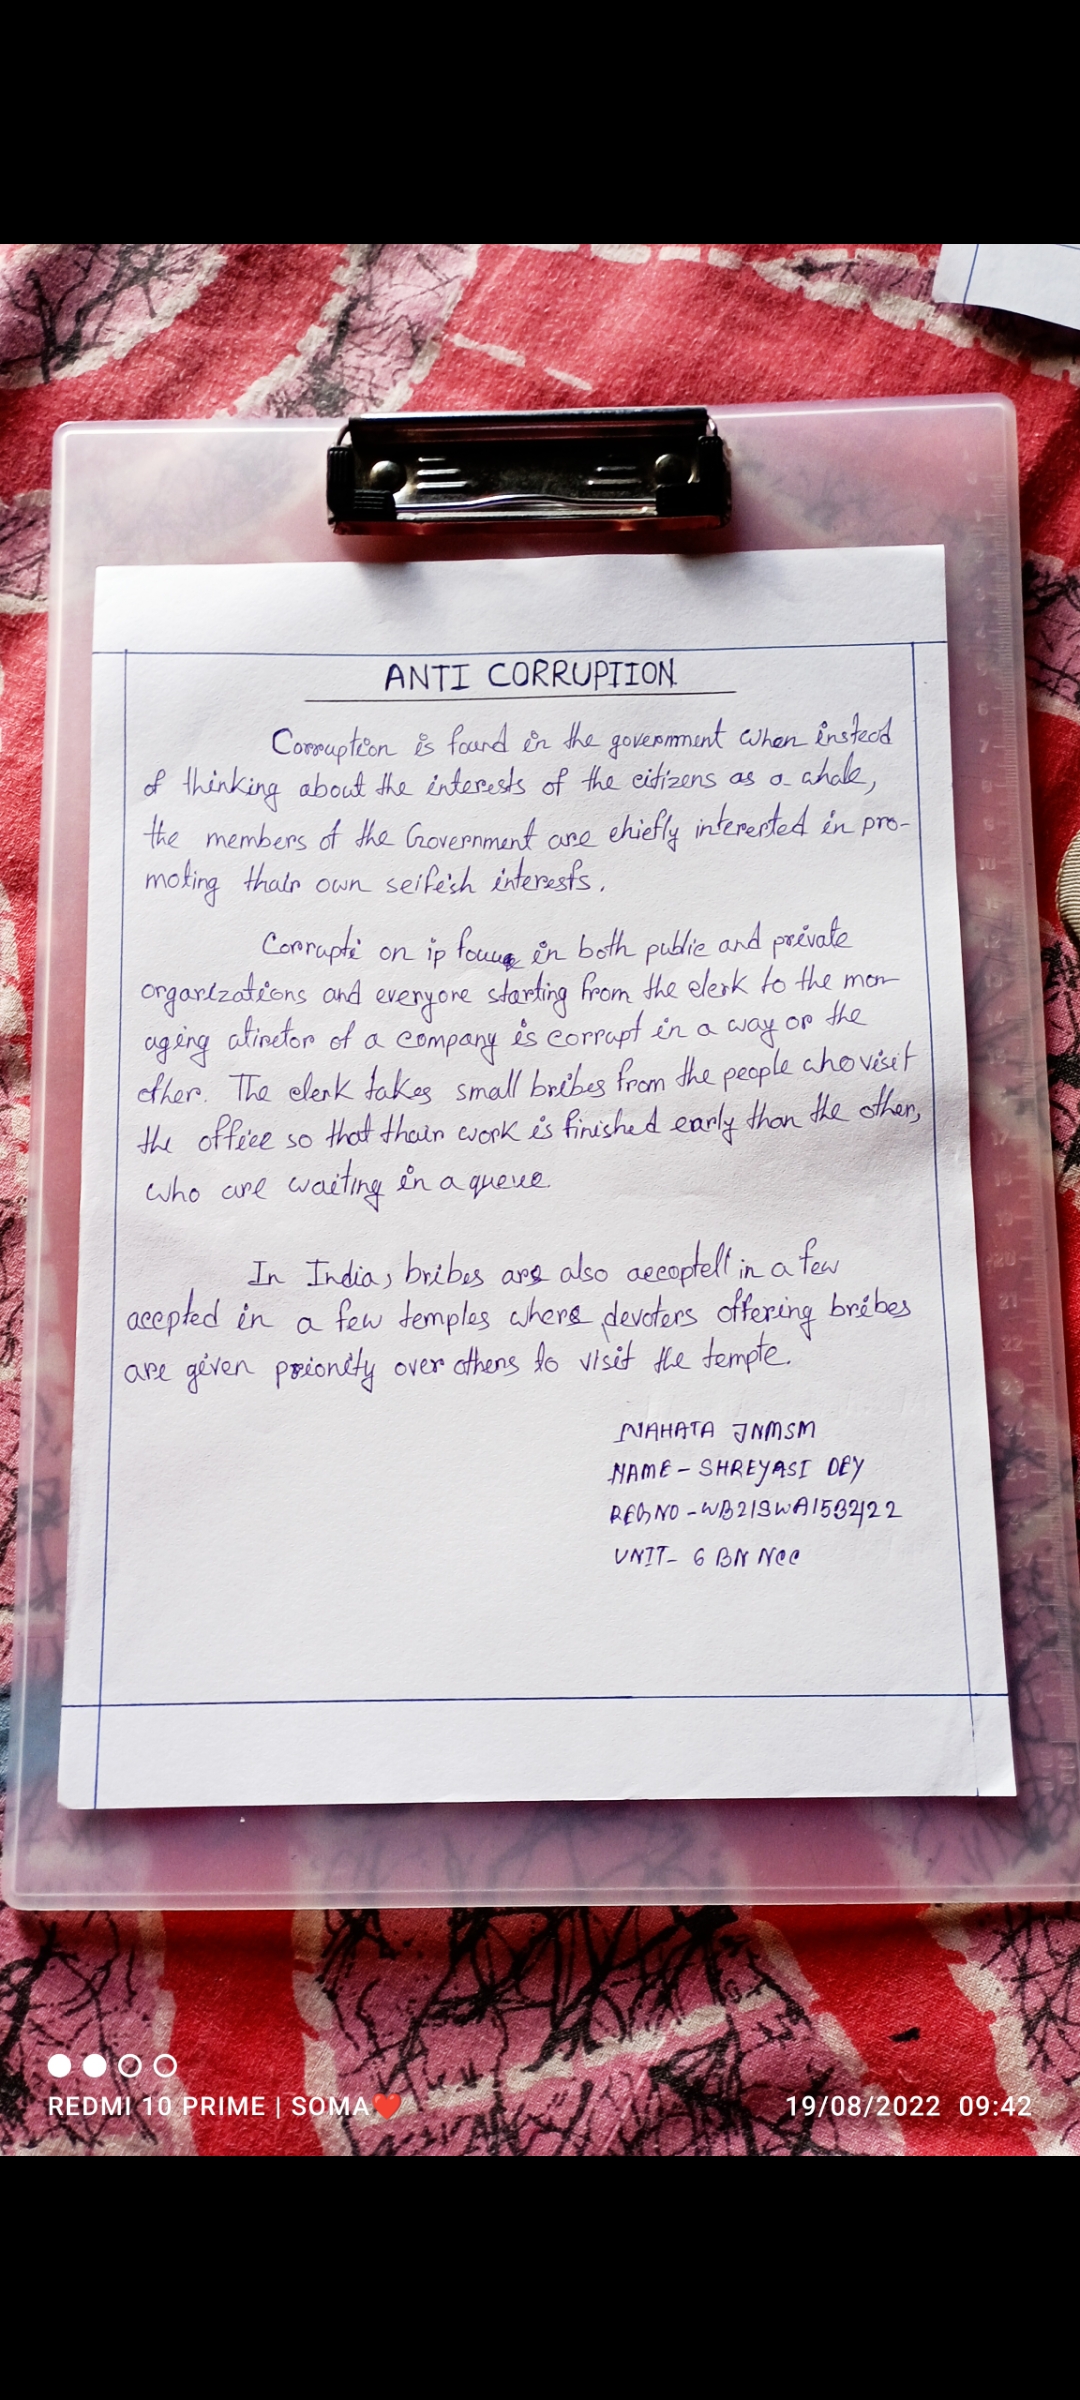 ANTI CORRUPTION
Corruption is found in the government when instead
of thinking about the interests of the citizens as a whole,
the members of the Government are chiefly interested in pro-
moting thair own selfish interests.
Corrupti on ip in both public and private
organizations and everyone starting from the clerk to the man
aging of a company is corrupt in a way or the
other. The clerk takes small bribes from the people who visit
the office so that thair work is finished early than the other,
who are waiting in a queue.
In India, bribes are also in a few
accepted in a few temples where devoters offering bribes
are given priority over others to visit the tempte.
NAHATA JNMSM
NAME - SHREYASI DEY
REGNO -
UNIT - 6 BN NCC
REDMI 10 PRIME | SOMA❤️
19/08/2022 09:42